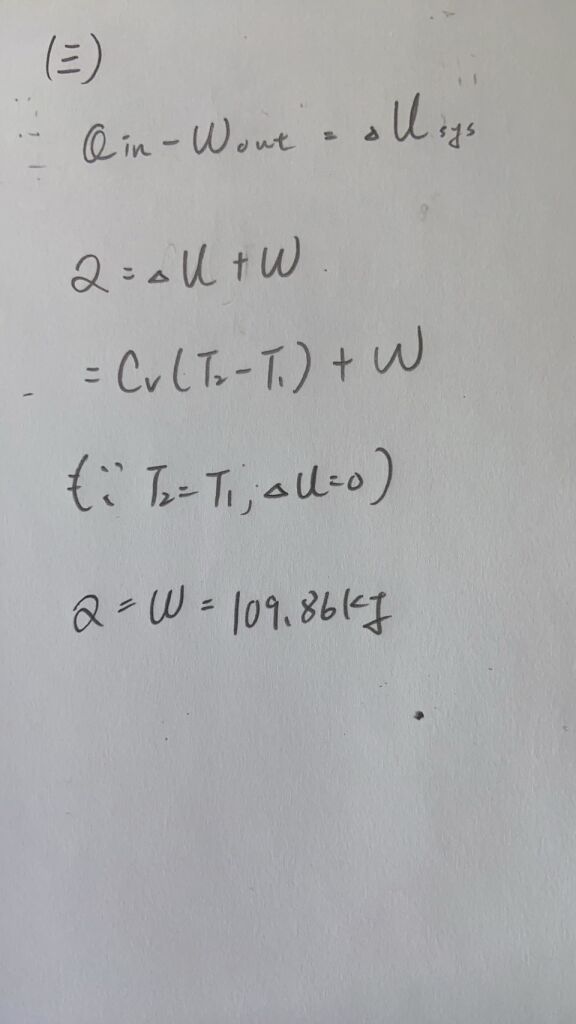 (三)
Qin - Wout = △Usys
Q = △U + W
= Cv(T₂ - T₁) + W
(∵ T₂ = T₁, △U = 0)
Q = W = 109.86 kJ